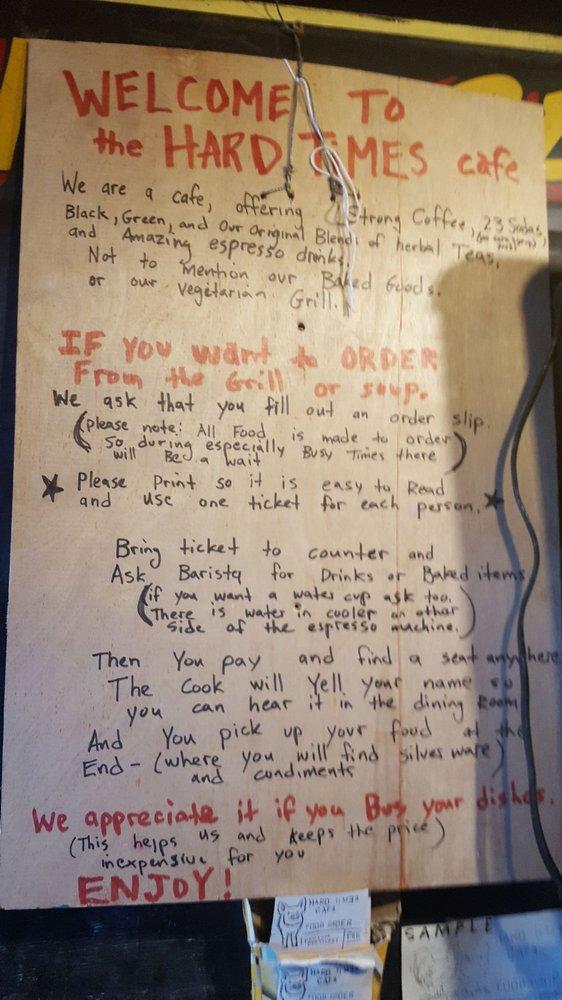 WELCOME TO
the HARD TIMES cafe
We are a cafe, offering Strong Coffee, 23 Sodas,
Black, Green, and Our Original Blends of herbal Teas,
and Amazing espresso drinks.
Not to Mention our Baked Goods.
or our Vegetarian Grill.
IF You want to ORDER
From the Grill or soup.
We ask that you fill out an order slip.
(please note: All Food is made to order
So during especially Busy Times there
will Be a wait)
★ Please Print so it is easy to Read
and use one ticket for each person. ★
Bring ticket to counter and
Ask Barista for Drinks or Baked items
(if you want a water cup ask too.
There is water in cooler on other
side of the espresso machine.)
Then You pay and find a seat anywhere
The Cook will Yell your name so
you can hear it in the dining Room
And You pick up your food at the
End - (where you will find silverware)
and condiments
We appreciate it if you Bus your dishes.
(This helps us and keeps the price)
inexpensive for you
ENJOY!
HARD TIMES
CAFE
FOOD ORDER
SAMPLE
HARD TIMES
CAFE
FOOD ORDER